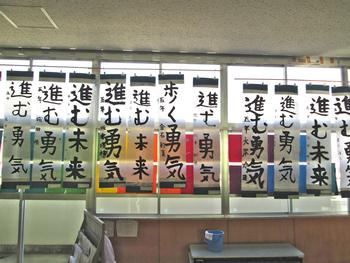 進む勇気
進む勇気
進む未来
進む勇気
進む未来
歩く勇気
進む勇気
進む勇気
進む勇気
進む未来
進む勇気